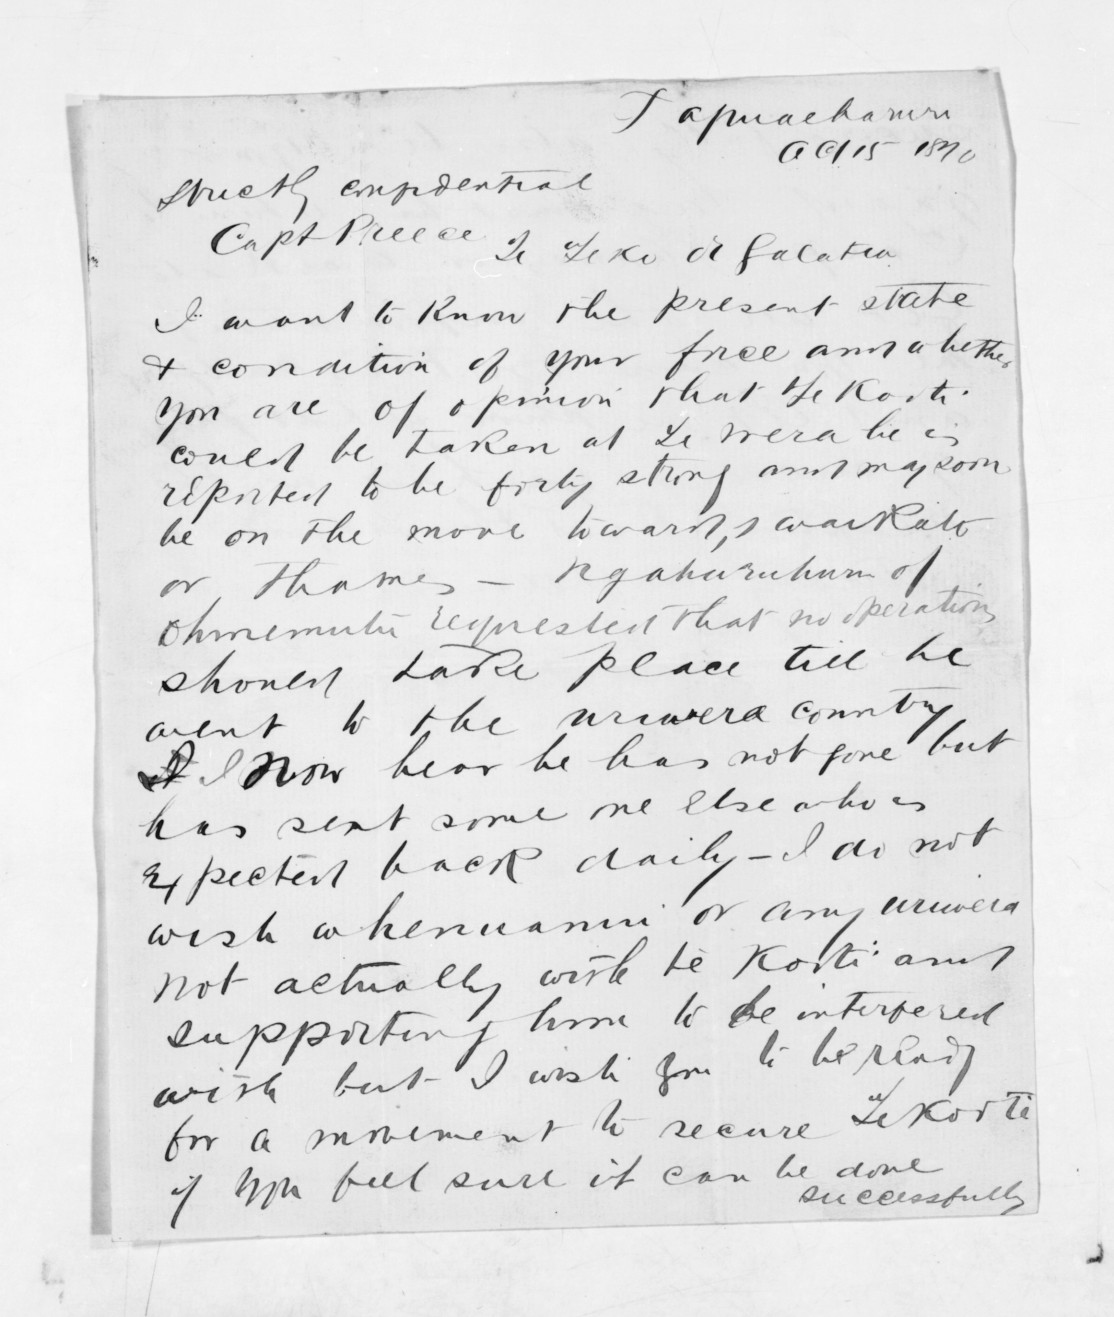 Tapuaeharuru
Oct 15 1870
Strictly confidential
Capt Preece Te Teko or Galatea
I want to know the present state
& condition of your force and whether
you are of opinion that Te Kooti
could be taken at Te Wera he is
reported to be forty strong and may soon
be on the move towards Waikato
or Thames – Ngahuruhuru of
Ohinemutu requested that no operations
should take place till he
went to the Uriwera country
I now hear he has not gone but
has sent some one else who is
expected back daily – I do not
wish Whenuanui or any Uriwera
not actually with Te Kooti and
supporting him to be interfered
with but I wish you to be ready
for a movement to secure Te Kooti
if you feel sure it can be done
successfully